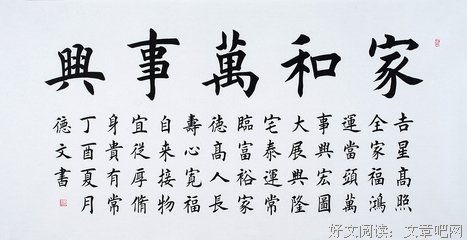 家和萬事興
吉星高照
全家福鴻
運當頭萬
事興宏圖
大展興隆
宅泰運常
臨富裕家
德高人長
壽心寬福
自来接物
宜從厚脩
身貴有常
丁酉夏月
德文書
好文阅读：文章吧网